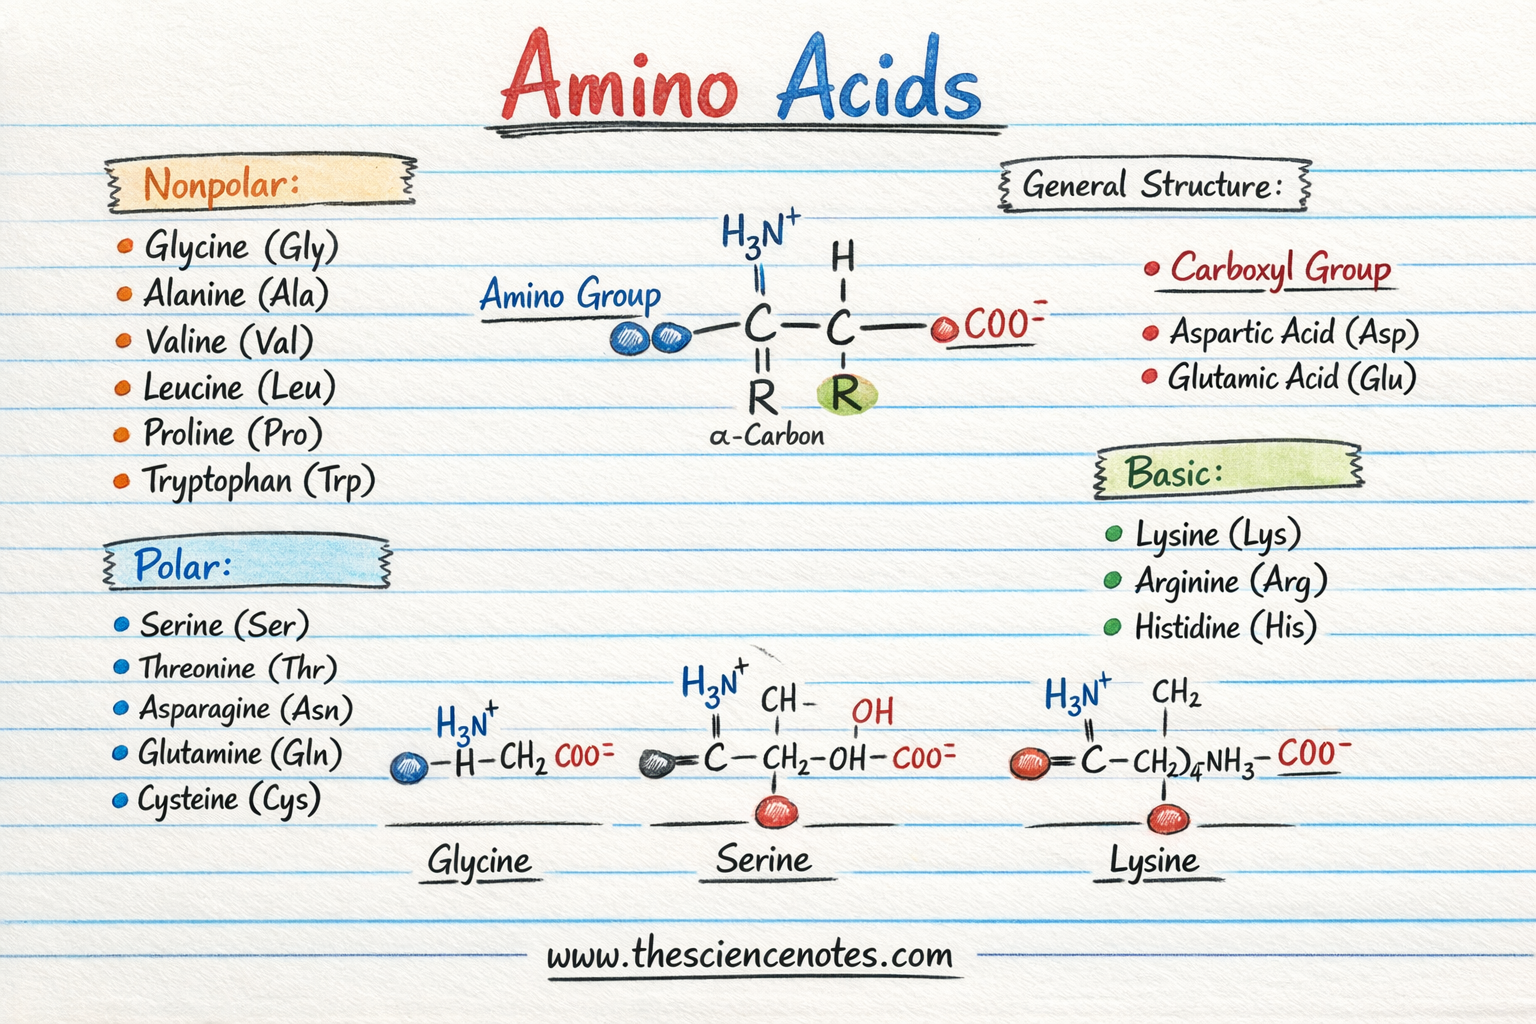 Amino Acids
Nonpolar:
• Glycine (Gly)
• Alanine (Ala)
• Valine (Val)
• Leucine (Leu)
• Proline (Pro)
• Tryptophan (Trp)
Polar:
• Serine (Ser)
• Threonine (Thr)
• Asparagine (Asn)
• Glutamine (Gln)
• Cysteine (Cys)
H₃N⁺
H
Amino Group
C — C — COO⁻
R R
α-Carbon
General Structure:
• Carboxyl Group
• Aspartic Acid (Asp)
• Glutamic Acid (Glu)
Basic:
• Lysine (Lys)
• Arginine (Arg)
• Histidine (His)
H₃N⁺
H–CH₂ COO⁼
Glycine
H₃N⁺ CH–
OH
=C–CH₂–OH–COO⁼
Serine
H₃N⁺ CH₂
=C–CH₂)₄–NH₃–COO⁻
Lysine
www.thesciencenotes.com